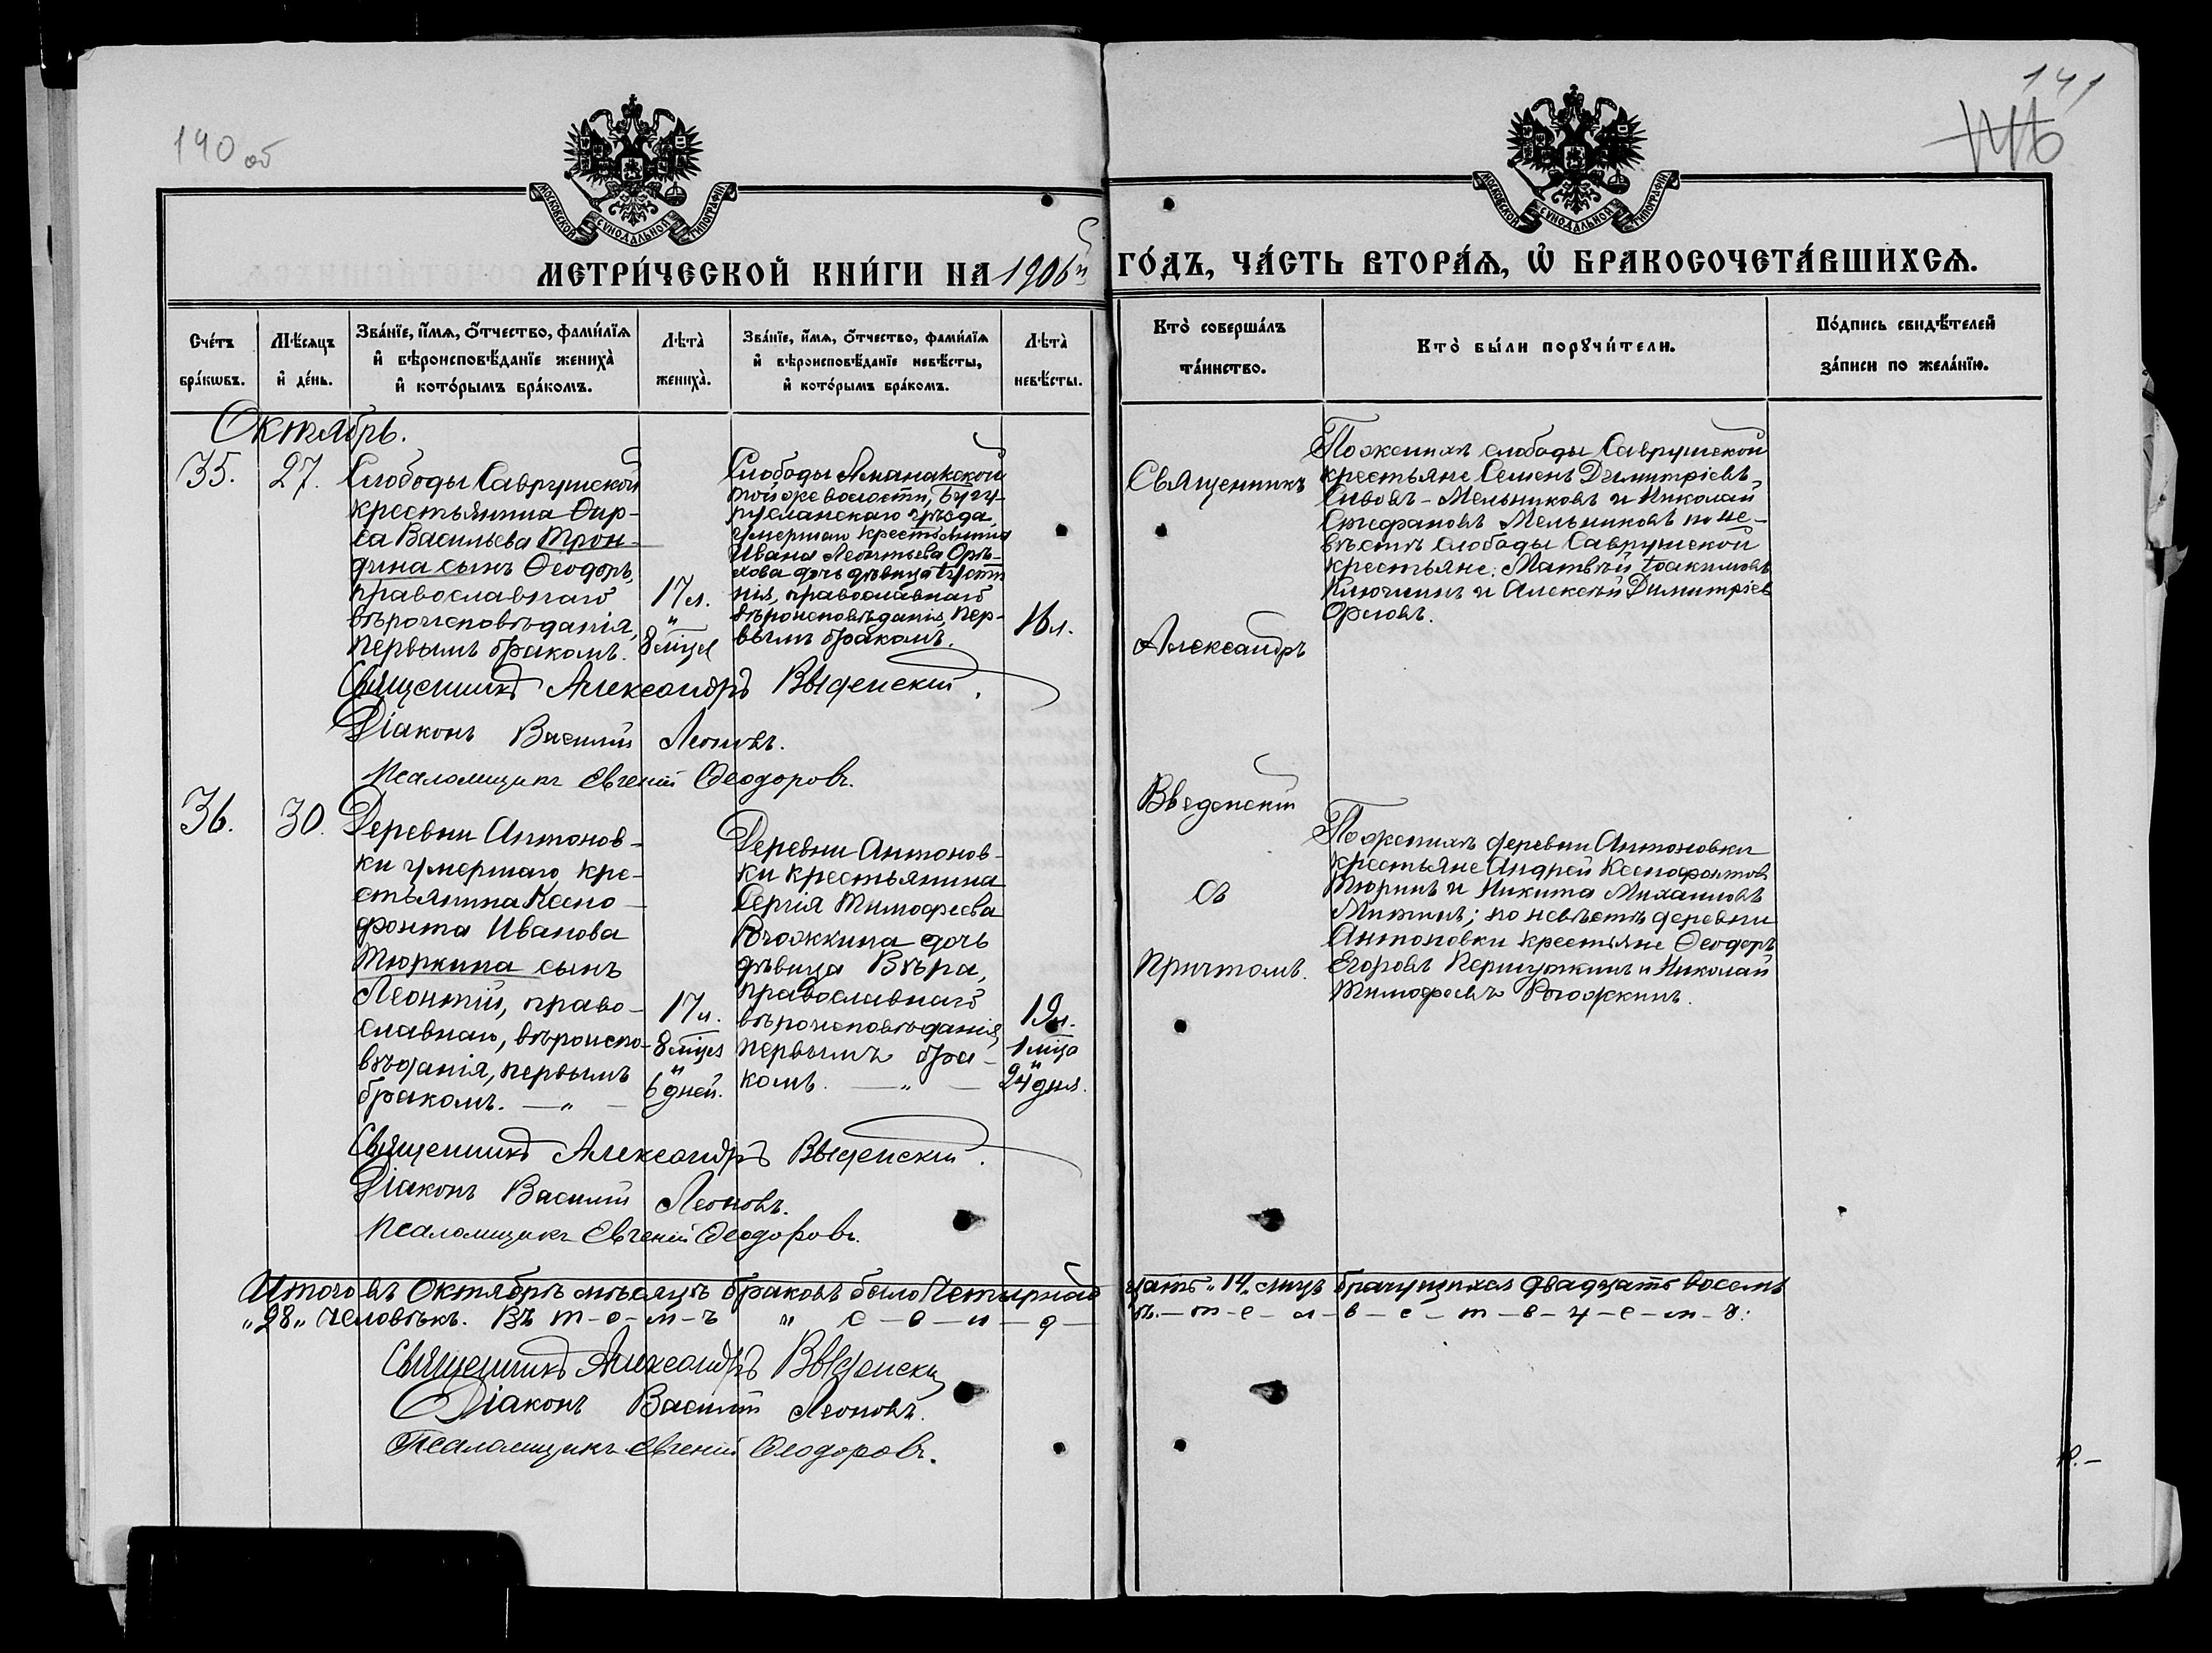 140 об
141
МОСКОВСКОЙ СѴНОДАЛЬНОЙ ТИПОГРАФІИ
МОСКОВСКОЙ СѴНОДАЛЬНОЙ ТИПОГРАФІИ
МЕТРИ́ЧЕСКОЙ КНИ́ГИ НА 1906й ГО́ДЪ, ЧА́СТЬ ВТОРА́Я, Ѡ҆ БРАКОСОЧЕТА́ВШИХСѦ.
Сче́тъ бра́кѡвъ.
Мѣ́сяцъ и҆ де́нь.
Зва́нїе, и҆́мя, ѻ҆́тчество, фами́лїя
и҆ вѣроисповѣ́данїе жениха̀
и҆ кото́рымъ бра́комъ.
Лѣта̀ жениха̀.
Зва́нїе, и҆́мя, ѻ҆́тчество, фами́лїя
и҆ вѣроисповѣ́данїе невѣ́сты,
и҆ кото́рымъ бра́комъ.
Лѣта̀ невѣ́сты.
Кто̀ соверша́лъ
та́инство.
Кто̀ бы́ли порꙋчи́тели.
По́дпись свидѣ́телей
за́писи по жела́нїю.
Октябрь.
35.
27.
Слободы Саврушской
крестьянина Ѳир-
са Васильева Трон-
дина сынъ Ѳеодоръ,
православнаго
вѣроисповѣданія,
первымъ бракомъ.
17 л.
8 мцев
Слободы Аманакской
той же волости, Бугу-
русланскаго уѣзда,
умершаго крестьянина
Ивана Леонтьева Орѣ-
хова дочь дѣвица Усти-
нія, православнаго
вѣроисповѣданія, пер-
вымъ бракомъ.
16 л.
Священникъ
Александръ
Введенскій
съ
причтомъ.
По женихѣ слободы Саврушской
крестьяне Семенъ Димитріевъ
Сивовъ-Мельниковъ и Николай
Стефановъ Мельниковъ по не-
вѣстѣ слободы Саврушской
крестьяне: Матвѣй Іоакимовъ
Ключникъ и Алексѣй Димитріевъ
Орловъ.
Священникъ Александръ Введенскій.
Діаконъ Василій Леоновъ.
Псаломщикъ Евгеній Ѳеодоровъ.
36.
30.
Деревни Антонов-
ки умершаго кре-
стьянина Ксено-
фонта Иванова
Тюркина сынъ
Леонтій, право-
славнаго, вѣроиспо-
вѣданія, первымъ
бракомъ. — „ —
17 л.
8 мцев
6 дней.
Деревни Антонов-
ки крестьянина
Сергія Тимофеева
Рогожкина дочь
дѣвица Вѣра,
православнаго
вѣроисповѣданія,
первымъ бра-
комъ. — „ —
19 л.
1 мца
24 дня.
По женихѣ деревни Антоновки
крестьяне Андрей Ксенофонтовъ
Тюринъ и Никита Михаиловъ
Митинъ; по невѣстѣ деревни
Антоновки крестьяне Ѳеодоръ
Егоровъ и Николай
Тимофеевъ Рогожкинъ.
Священникъ Александръ Введенскій.
Діаконъ Василій Леоновъ.
Псаломщикъ Евгеній Ѳеодоровъ.
Итого въ Октябрѣ мѣсяцѣ браковъ было Четырнадцать „14„ лицъ брачущихся двадцать восемь
„28„ человѣкъ. Въ т-о-м-ъ „ с-в-и-д-ѣ-т-е-л-ь-с-т-в-у-е-м-ъ:
Священникъ Александръ Введенскій
Діаконъ Василій Леоновъ.
Псаломщикъ Евгеній Ѳеодоровъ.